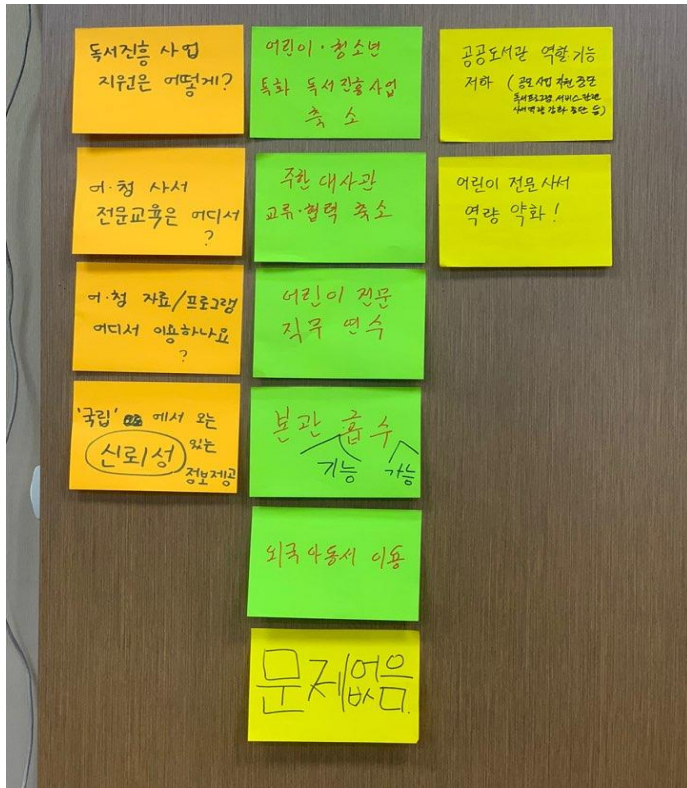 독서진흥 사업
지원은 어떻게?
어·청 사서
전문교육은 어디서
?
어·청 자료/프로그램
어디서 이용하나요
?
'국립' 에서 오는
신뢰성 있는
정보제공
어린이·청소년
특화 독서진흥사업
축소
주한 대사관
교류·협력 축소
어린이 전문
직무 연수
본관 흡수
기능 가능
외국아동서 이용
문제없음.
공공도서관 역할기능
저하 (공모사업 지원 중단
독서프로그램, 서비스 관련
사서역량 강화 중단 등)
어린이 전문사서
역량 약화!